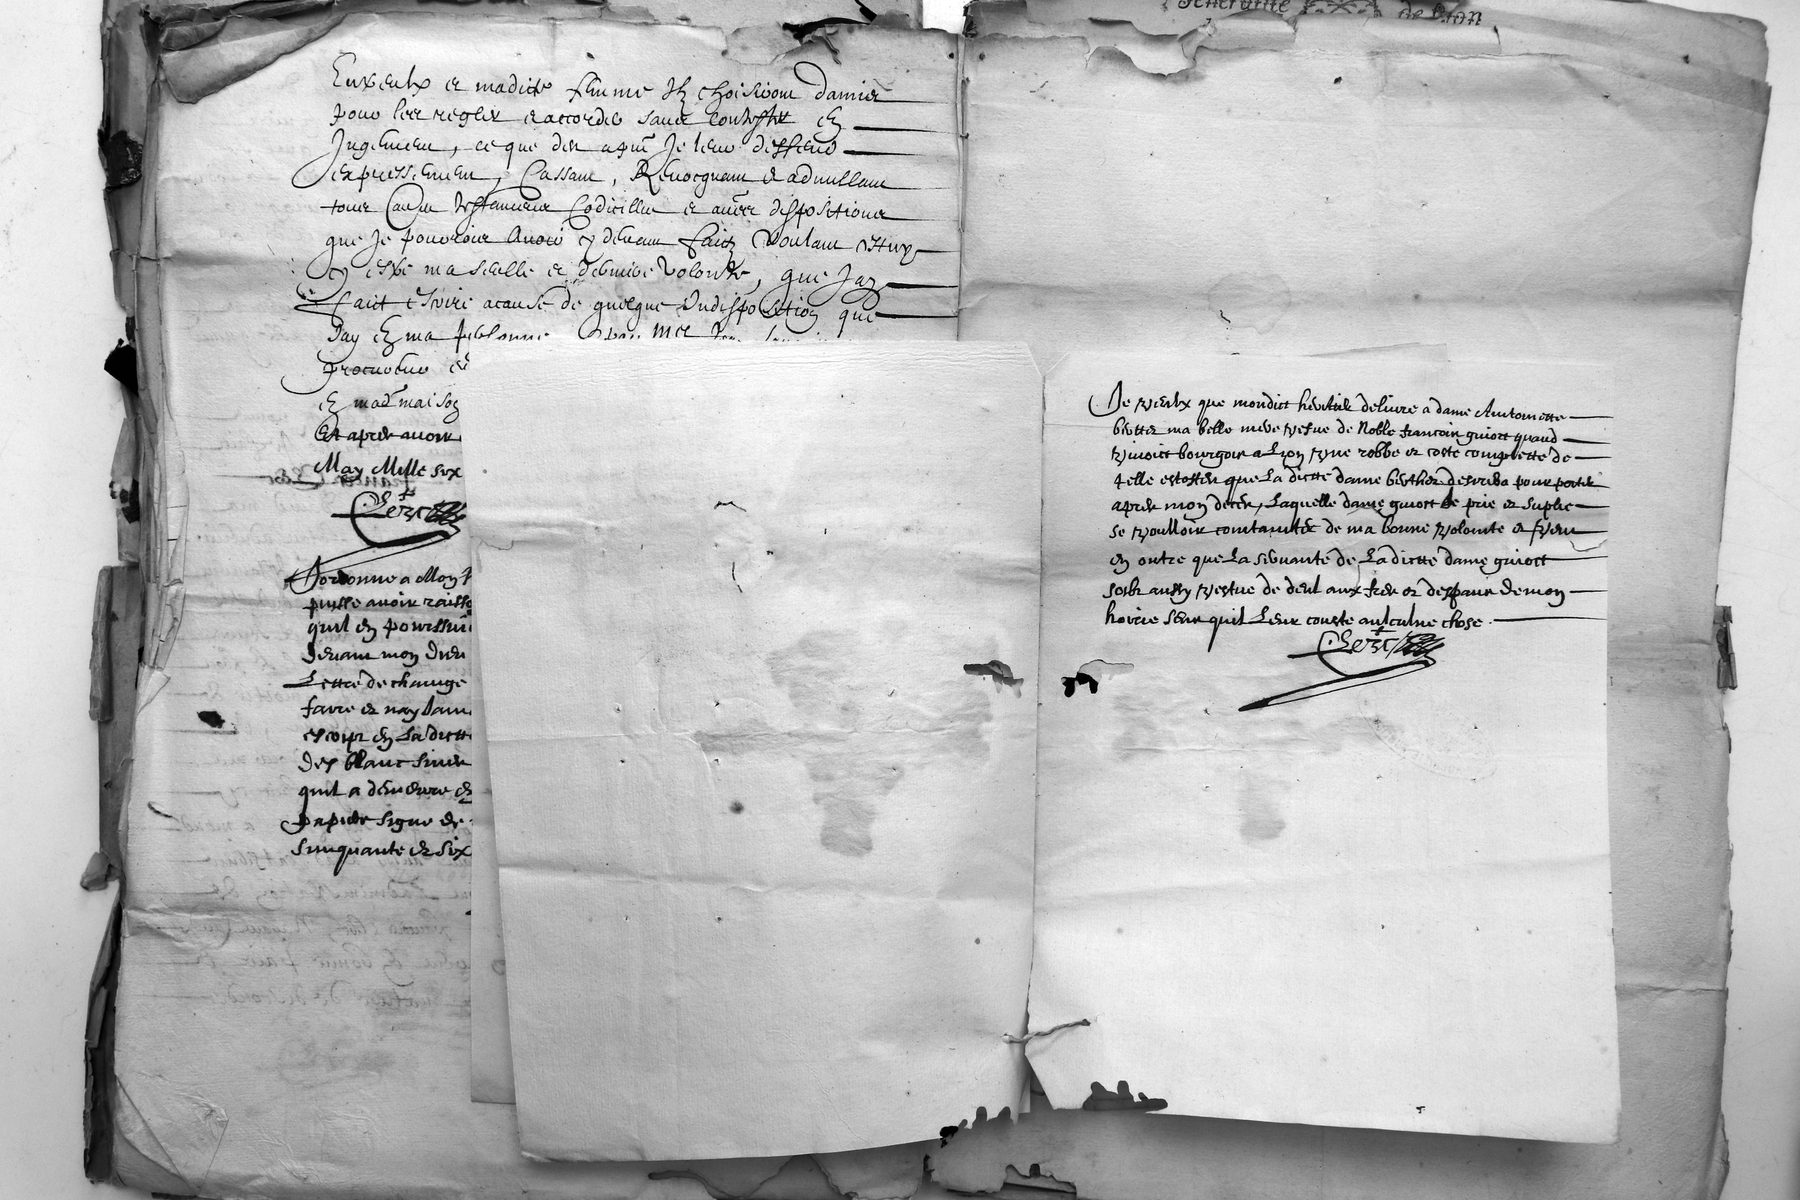 Generalité de Lion
Eux eulx et madicte femme Ilz choisiront d'amis
pour les regler et accorder sans contester en
Jugement, ce que des apnt Je leur deffend
expressement, Cassant, Revocquant et adnullant
tous autres testaments Codicilles et autres dispositions
que Je pourrois Avoir cy devant faict Voulant
ma seulle et derniere volonte, que Jay
faict escrire a cause de quelque Indisposition que
Jay en ma personne
procureur
en mad maison
Et apres avoir
May Mille six
Clerc
Jordonne a Mon
puisse avoir raison
quil en poursuiv
devant mon Dieu
Lettre de change
faire et nay Jam
en Ladicte
des blanc sine
quil a demeure en
papier signe de
sinquante et six
Je veulx que mondict heritier delivre a dame Anthoinette
berthet ma belle mere vefve de Noble francois guiott quand
vivoict bourgois a Lion une robbe et cotte complette de
telle estoffe que La dictte dame berthet desirera pour porter
apres mon deces, Laquelle dame guiott Je prie et suplie
se voulloir contanter de ma bonne volonte et veu
en outre que La servante de La dictte dame guiott
soit aussy vestue de deul aux frex et despans de mon
hoirie sans quil Leur couste aulcune chose.
Clerc